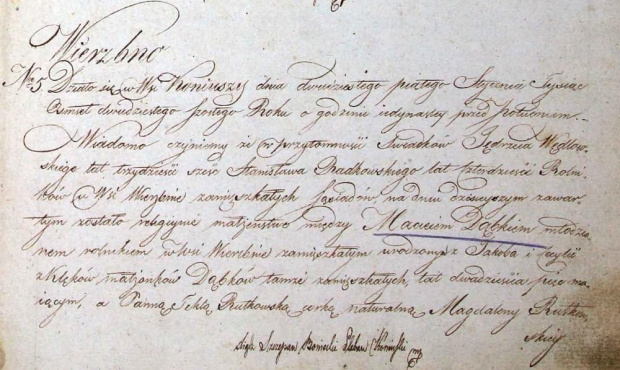 Wierzbno
No 5 Działo się w Wsi Koniuszy dnia dwudziestego piątego Stycznia Tysiąc
Ośmset dwudziestego szóstego Roku o godzinie iedynasty przed południem.
Wiadomo czyniemy iż w przytomności Swiadków Jędrzeia Węglow-
skiego lat trzydzieści sześć Stanisława Radkowskiego lat czterdzieści Rolni-
ków w Wsi Wierzbnie zamięszkałych Sąsiadów, na dniu dzisieyszym zawar-
tym zostało religiyne małżeństwo między Macieiem Dąbkiem młodzia-
nem rolnikiem w Wsi Wierzbnie zamięszkałym urodzonym z Jakoba i Cecylii
małżonków Dąbków tamże zamięszkałych, lat dwadzieścia pięć ma-
iącym, a Panną Teklą Rutkowską córką naturalną Magdaleny Rutkow
skiey
Szczepan Pleban